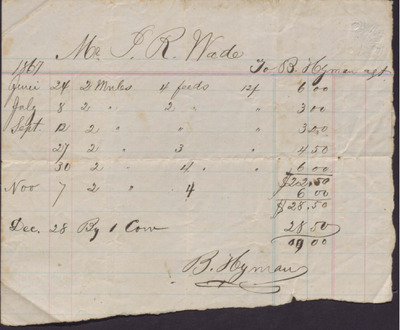 Mr J. R. Wade
1867 To B. Hyman agt.
June 24 2 Mules 4 feeds 12½ 6 00
July 8 2 " 2 " " 3 00
Sept. 12 2 " " " 3 00
27 2 " 3 " 4 50
30 2 " 4 " " 6 00
$22.50
Nov 7 2 " 4 6 00
$28.50
Dec. 28 By 1 Cow 28 50
00 00
B. Hyman